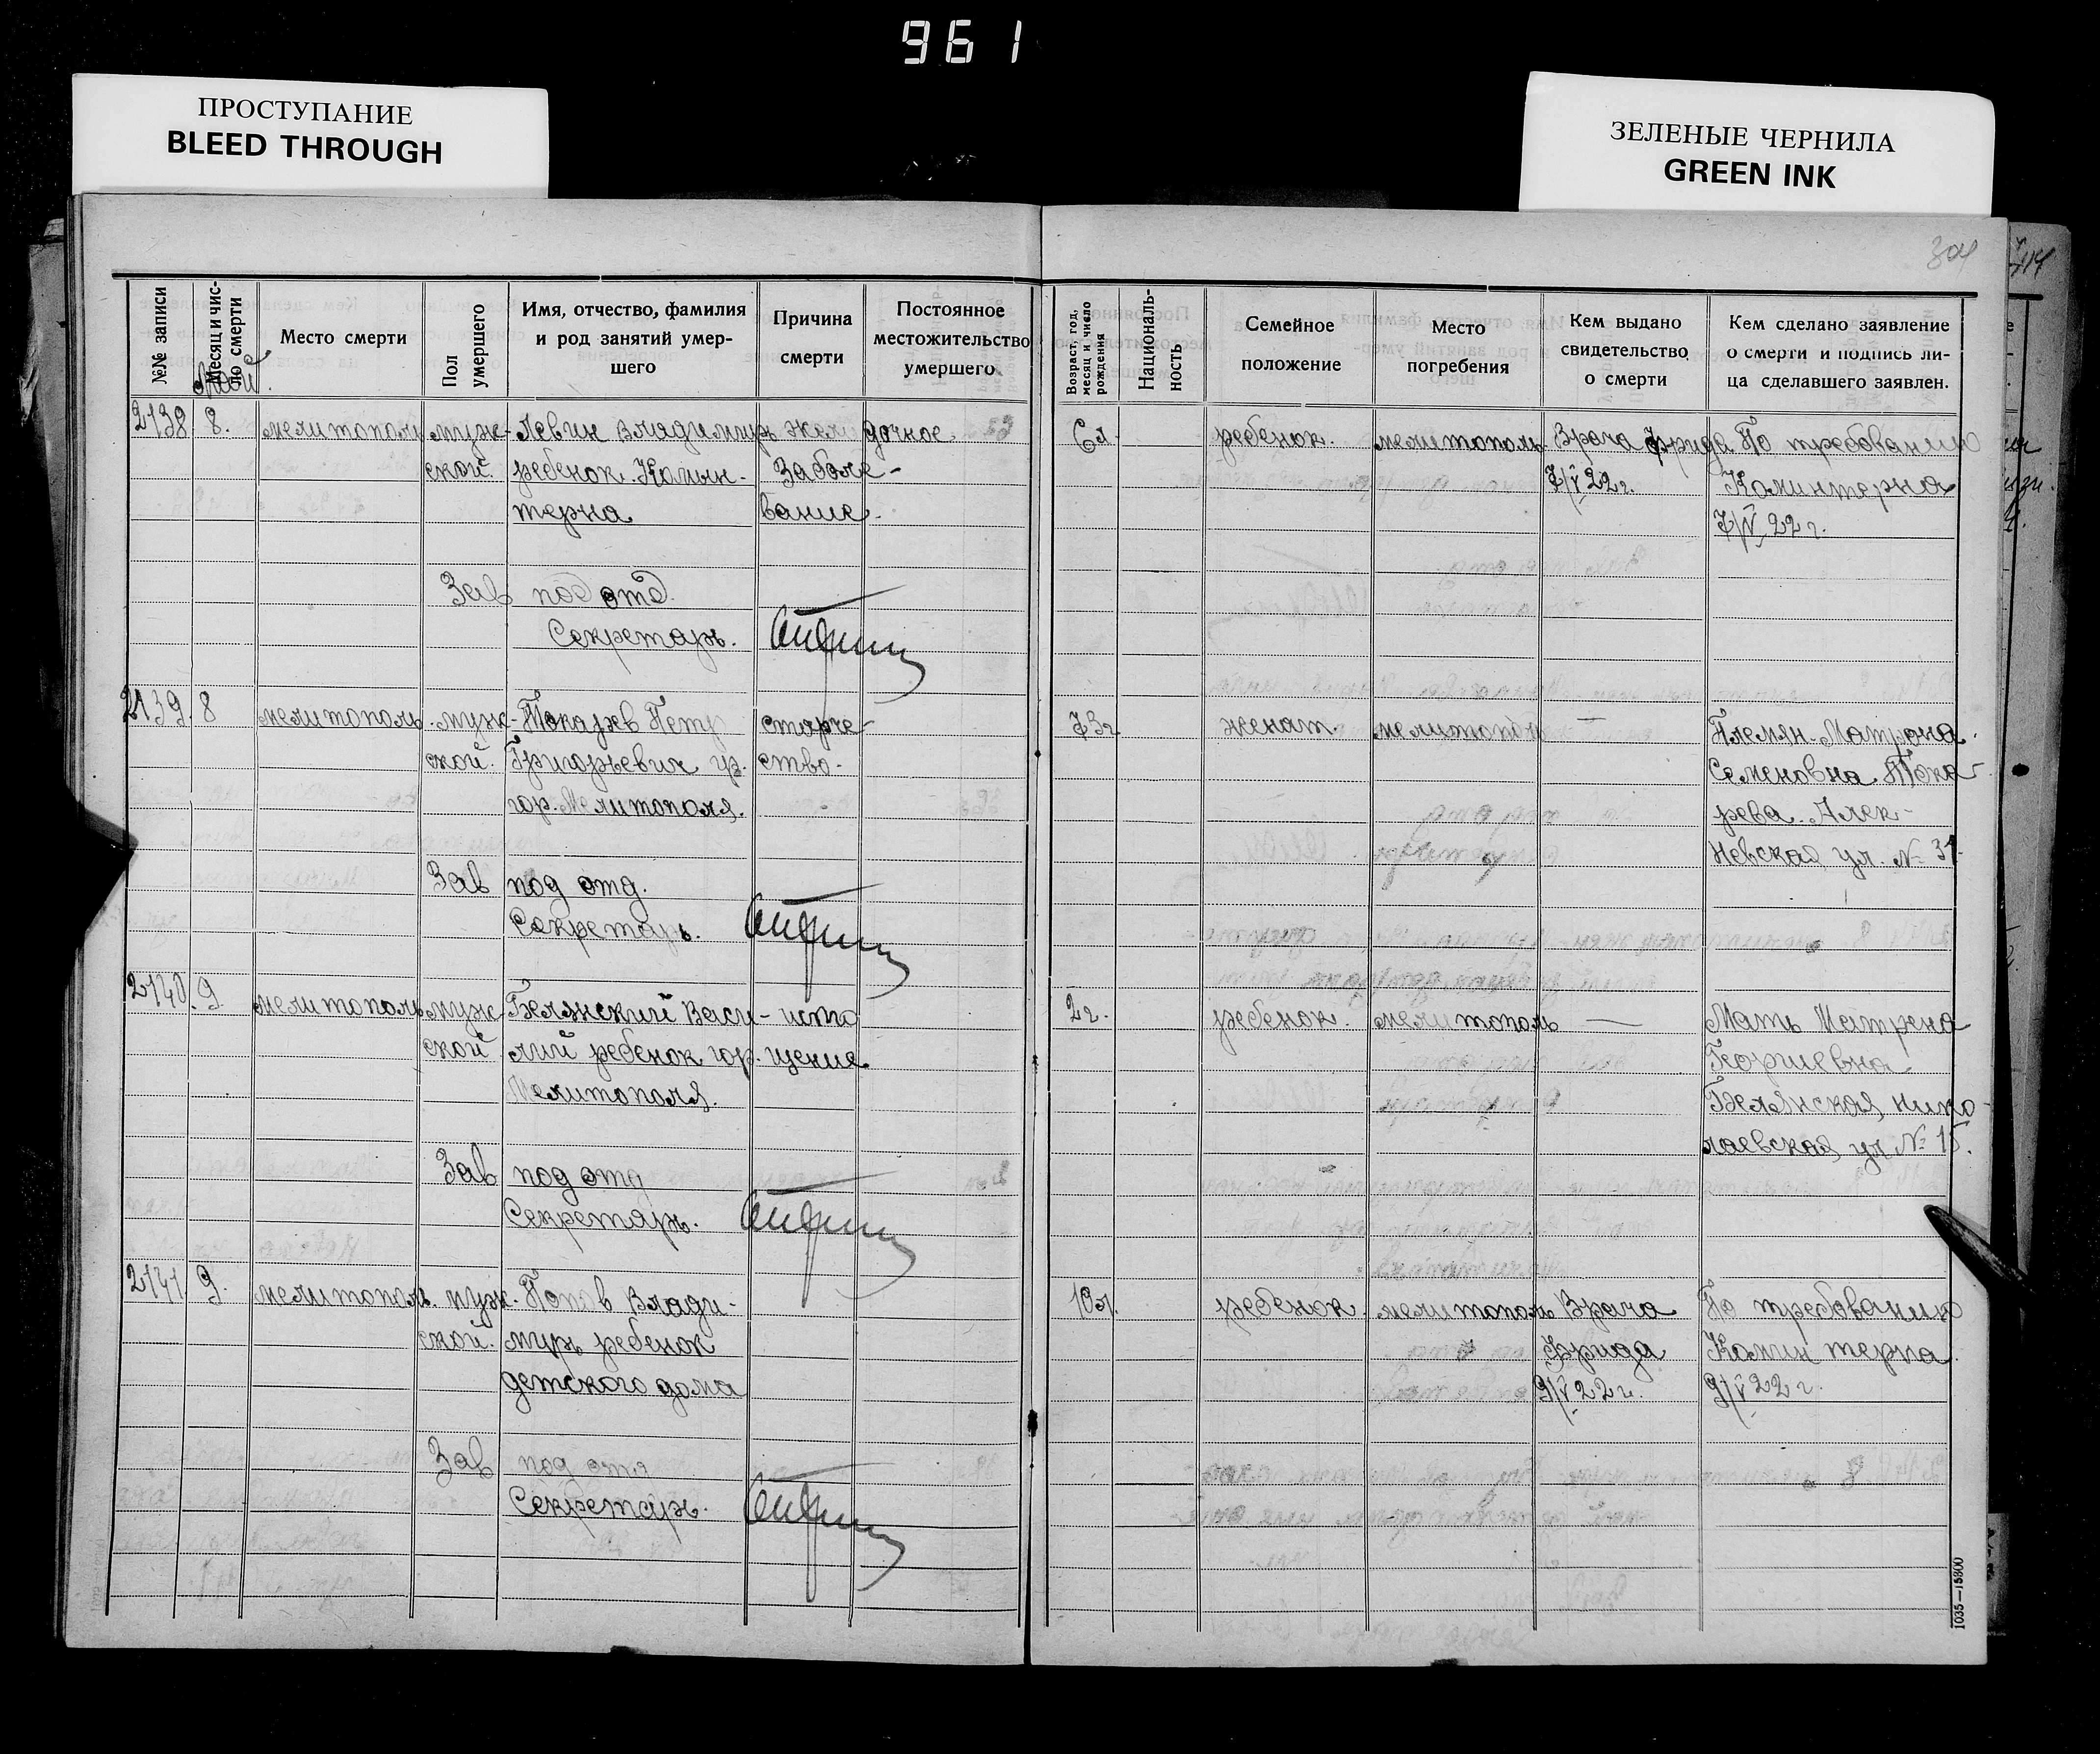 961
ПРОСТУПАНИЕ
BLEED THROUGH
ЗЕЛЕНЫЕ ЧЕРНИЛА
GREEN INK
304
№№ записи
Месяц и число смерти
Место смерти
Пол умершего
Имя, отчество, фамилия
и род занятий умер-
шего
Причина
смерти
Постоянное
местожительство
умершего
Возраст, год,
месяц и число
рождения
Националь-
ность
Семейное
положение
Место
погребения
Кем выдано
свидетельство
о смерти
Кем сделано заявление
о смерти и подпись ли-
ца сделавшего заявлен.
Май
2138 8. мелитополь муж- Левин Владимир желудочное 6л. ребенок. мелитополь Врача Фрида По требованию
ской. ребенок. Комын- Заболе- 7/V 22г. Коминтерна
терна вание. 7/V 22 г.
Зав под отд.
Секретарь.
2139. 8 мелитополь. муж- Токарев Петр старче- 73г. женат мелитополь — Племян. Матрона
ской. Григорьевич гр. ство. Семеновна Тока-
гор. Мелитополя. рева. Алек-
Невская ул. № 31.
Зав под отд.
Секретарь.
2140. 9. мелитополь муж- Белянский Васи- исто 2г. ребенок. мелитополь — Мать Матрена
ской лий ребенок гор. щение. Георгиевна
Мелитополя. Белянская Нико-
лаевская ул № 15.
Зав под отд
Секретарь.
2141 9. мелитополь. муж- Попов Влади- 10л. ребенок. мелитополь Врача По требованию
ской. мир ребенок Фрида Комин терна
детского дома 9/V 22 г. 9/V 22 г.
Зав под отд
Секретарь.
1035—15800